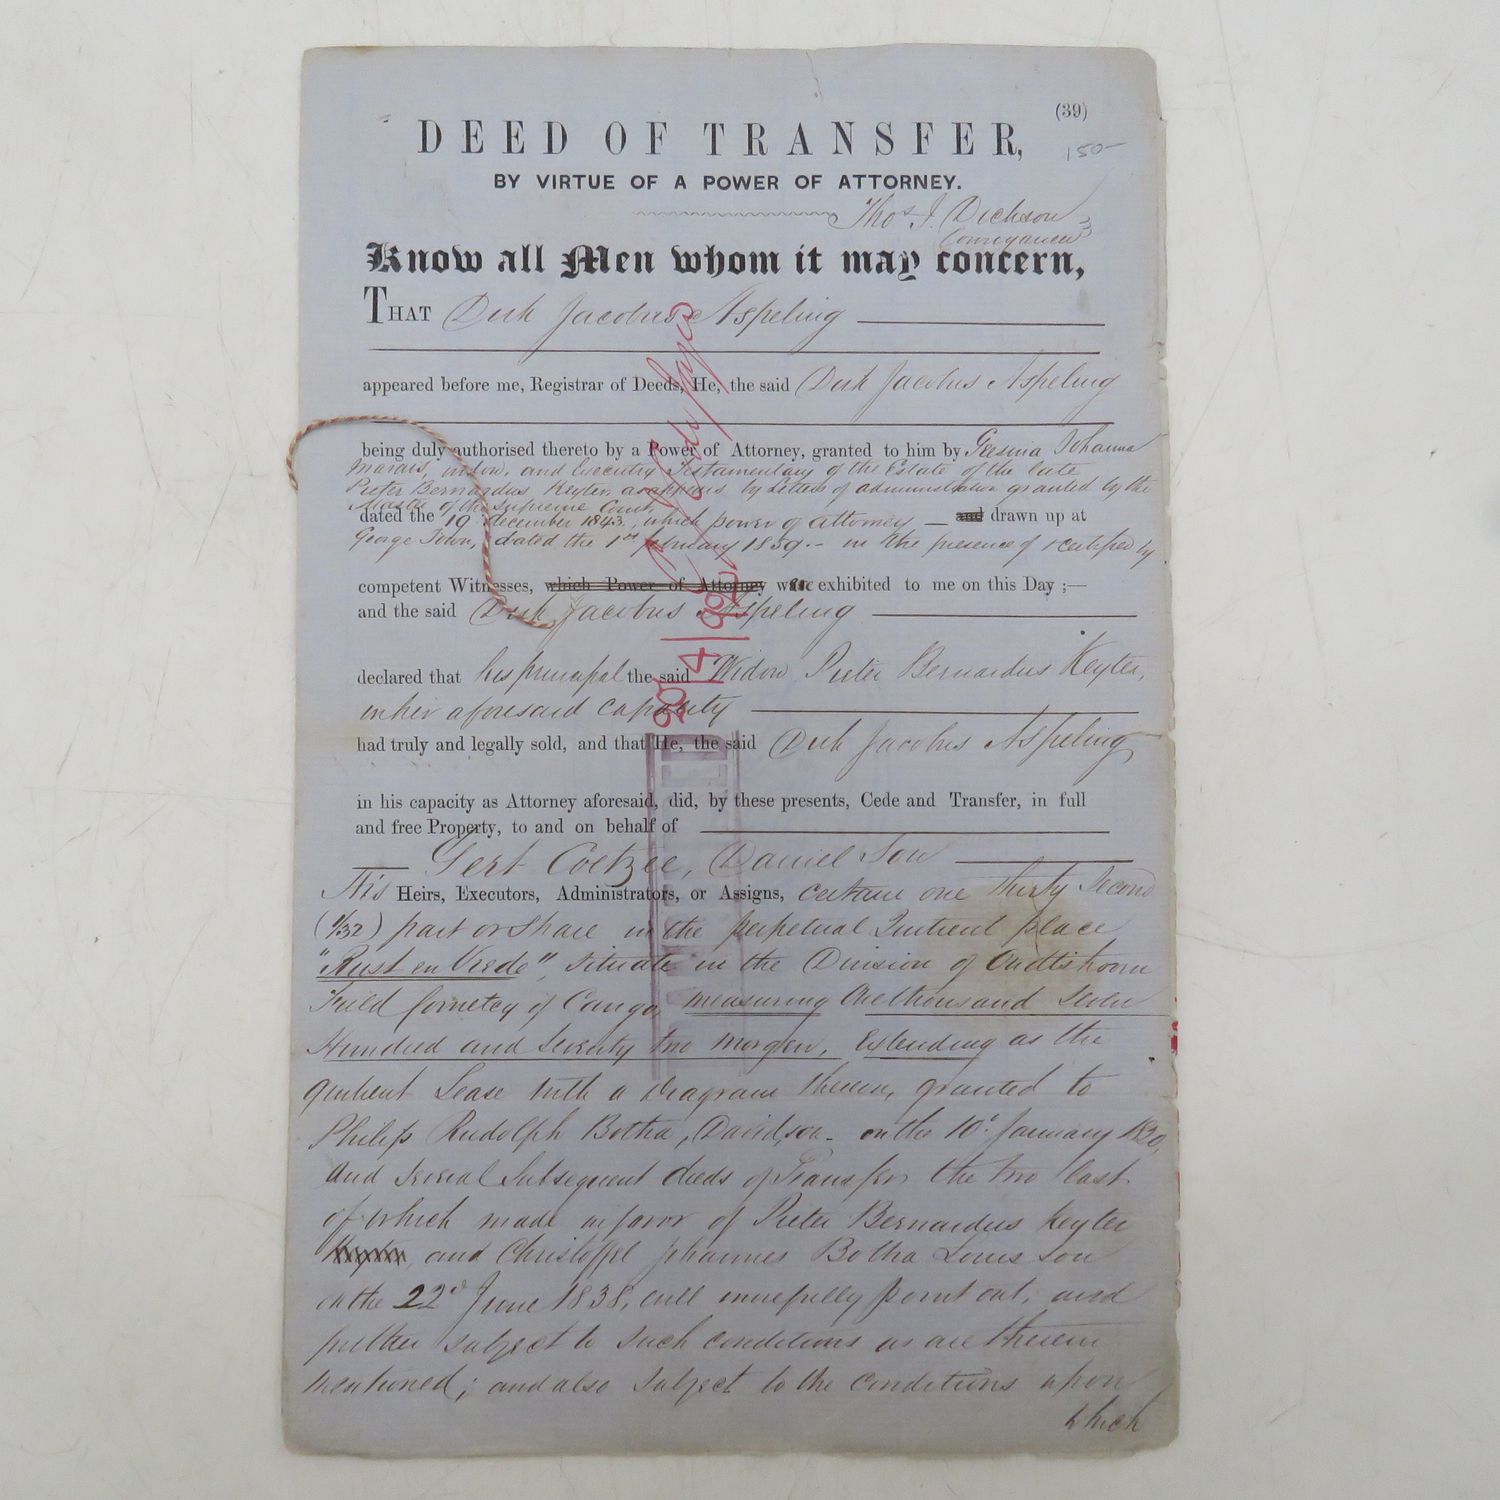 (39)
DEED OF TRANSFER,
150-
BY VIRTUE OF A POWER OF ATTORNEY.
Thos J. Dickson
Conveyancer
Know all Men whom it may concern,
THAT Dirk Jacobus Aspeling
appeared before me, Registrar of Deeds, He, the said Dirk Jacobus Aspeling
being duly authorised thereto by a Power of Attorney, granted to him by Gesina Johanna
Marais, widow, and Executrix Testamentary of the Estate of the late
Pieter Bernardus Keyter, as appears by Letters of administration granted by the
Master of the Supreme Court,
dated the 19 december 1843, which power of attorney and drawn up at
George Town, dated the 1st february 1859.- in the presence of & certified by
competent Witnesses, which Power of Attorney was exhibited to me on this Day ;—
and the said Dirk Jacobus Aspeling
declared that his principal the said Widow Pieter Bernardus Keyter,
in her aforesaid capacity
had truly and legally sold, and that He, the said Dirk Jacobus Aspeling
in his capacity as Attorney aforesaid, did, by these presents, Cede and Transfer, in full
and free Property, to and on behalf of
Gert Coetzee, Daniel Son
His Heirs, Executors, Administrators, or Assigns, certain one thirty second
(1/32) part or share in the perpetual Quitrent place
"Rust en Vrede", situate in the Division of Oudtshoorn
Field Cornetcy of Cango, measuring One thousand Seven
Hundred and Seventy two morgen, Extending as the
quitrent Lease with a Diagram thereon, granted to
Philip Rudolph Botha, Davidson - on the 10th January 1820,
and several Subsequent deeds of Transfer the two last
of which made in favor of Pieter Bernardus Keyter
and Christoffel Johannes Botha Louis son
on the 22d June 1838, will more fully point out, and
further subject to such conditions as are therein
mentioned; and also subject to the conditions upon
which
20/4/99